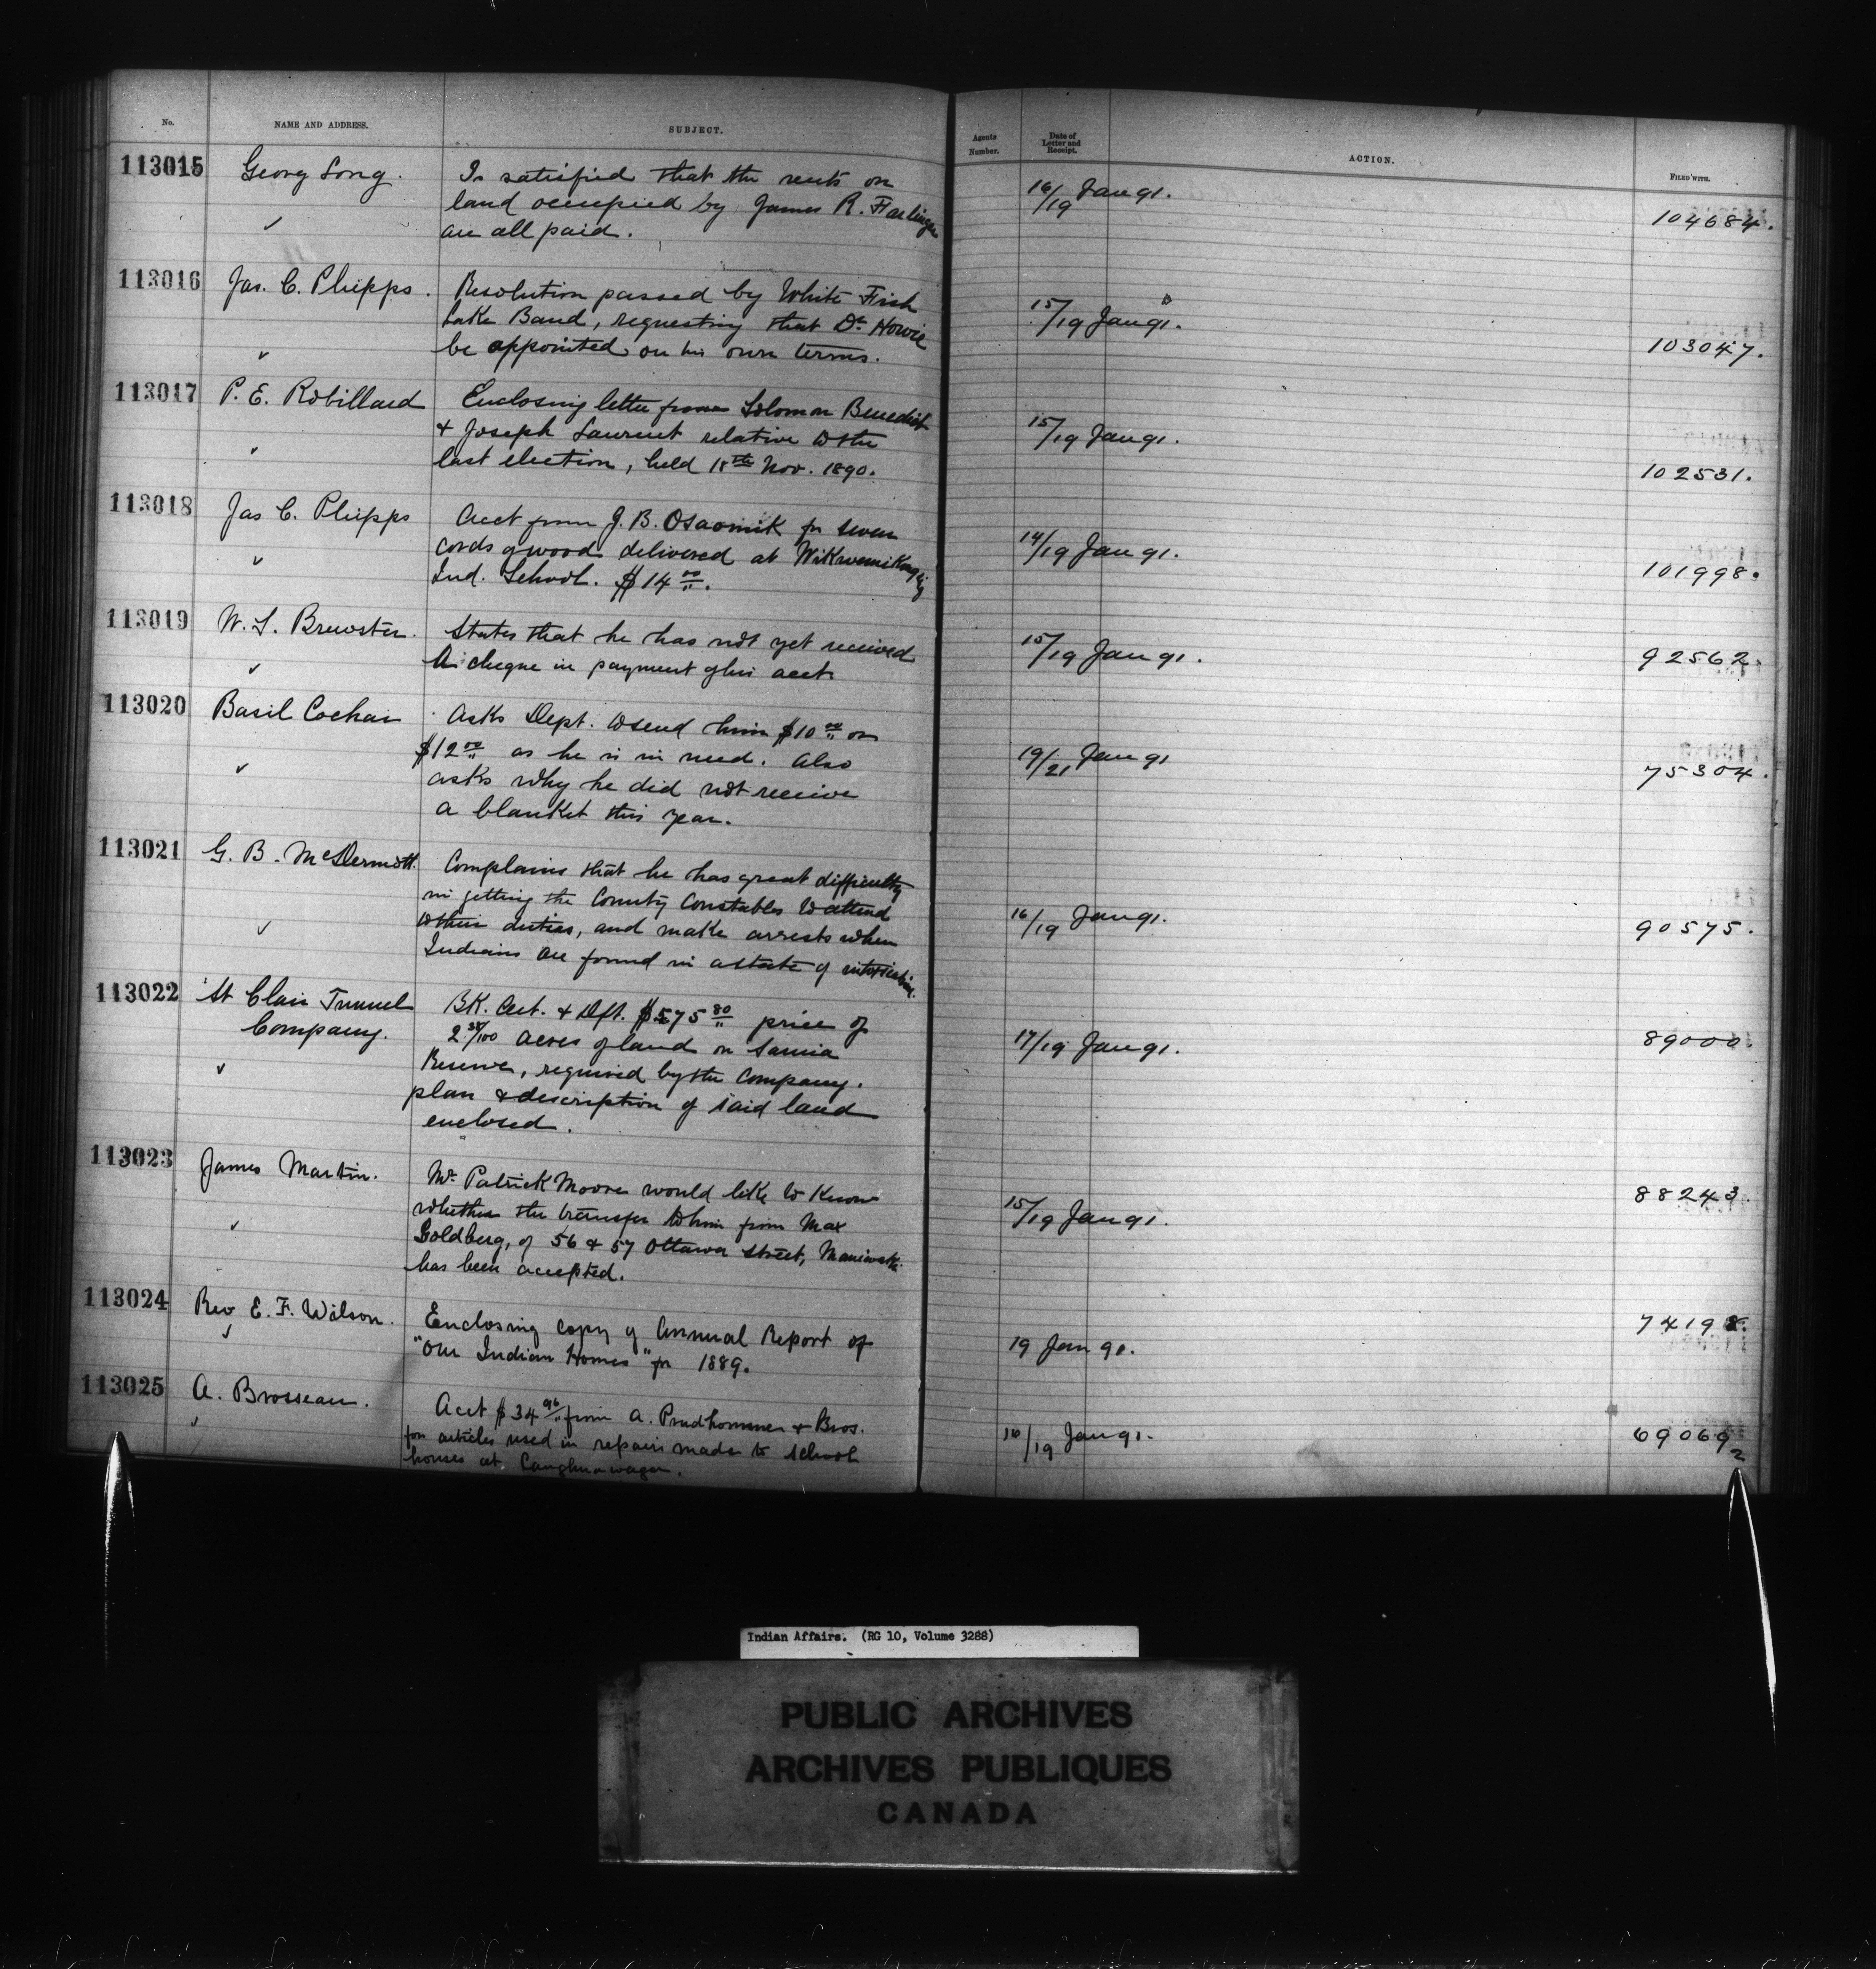 No.
NAME AND ADDRESS.
SUBJECT.
Agents
Number.
Date of
Letter and
Receipt.
ACTION.
FILED WITH.
113015
Georg Long.
Is satisfied that the rents on
land occupied by James R. Farlinger
are all paid.
16/19 Jan 91.
104684.
113016
Jas. C. Phipps.
Resolution passed by White Fish
Lake Band, requesting that Dr. Howie
be appointed on his own terms.
15/19 Jan 91.
103047.
113017
P. E. Robillard
Enclosing letter from Solomon Benedict
& Joseph Laurent relative to the
last election, held 18th Nov. 1890.
15/19 Jan 91.
102531.
113018
Jas C. Phipps
Acct from J. B. Osaomik for seven
cords of wood delivered at Wikwemikong
Ind. School. $14 00/".
14/19 Jan 91.
101998.
113019
W. S. Brewster.
States that he has not yet received
a cheque in payment of his acct.
15/19 Jan 91.
92562.
113020
Basil Cochai
Asks Dept. to send him $10 00/" or
$12 00/" as he is in need. Also
asks why he did not receive
a blanket this year.
19/21 Jan 91
75304.
113021
G. B. McDermott.
Complains that he has great difficulty
in getting the County Constables to attend
to their duties, and make arrests when
Indians are found in a state of intoxication.
16/19 Jan 91.
90575.
113022
St Clair Tunnel
Company.
BK. Cert. & Dft. $575 80/" price of
2 38/100 acres of land on Sarnia
Reserve, required by the Company.
plan & description of said land
enclosed.
17/19 Jan 91.
89000.
113023
James Martin.
Mr. Patrick Moore would like to know
whether the transfer to him from Max
Goldberg, of 56 & 57 Ottawa Street, Maniwaki
has been accepted.
15/19 Jan 91.
88243.
113024
Rev E. F. Wilson.
Enclosing copy of Annual Report of
"Our Indian Homes" for 1889.
19 Jan 91.
74198.
113025
A. Brosseau.
Acct $34 96/" from A. Prudhomme & Bros.
for articles used in repairs made to school
houses at Caughnawaga.
16/19 Jan 91.
69069
2
Indian Affairs. (RG 10, Volume 3288)
PUBLIC ARCHIVES
ARCHIVES PUBLIQUES
CANADA